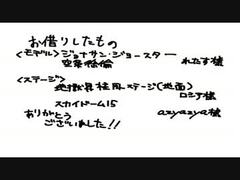 お借りしたもの
<モデル>ジョナサン・ジョースター
空条徐倫 れたす様
<ステージ>
地獄昇柱風ステージ(地面)
ロシア様
スカイドーム15
azyazya様
ありがとう
ございました!!